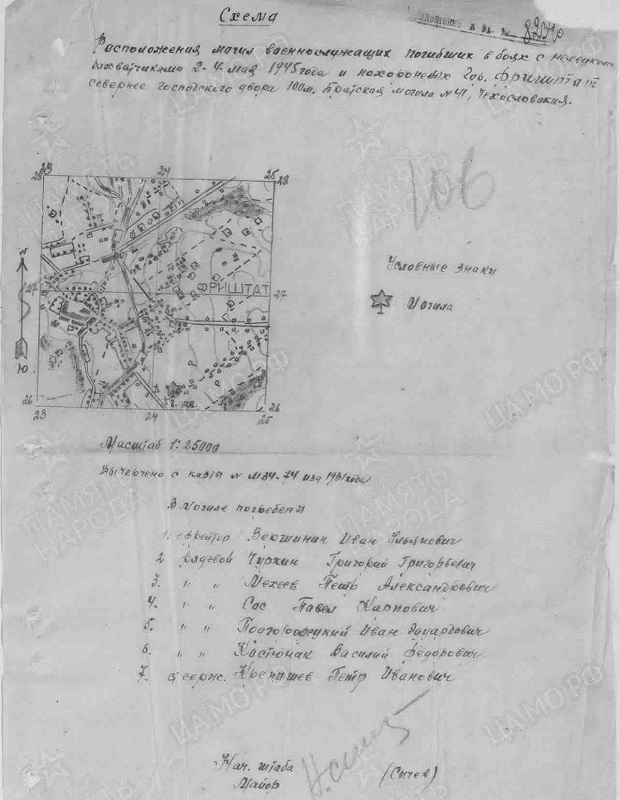 Схема
Расположения могил военнослужащих погибших в боях с немецкими
захватчиками 2-4 мая 1945 года и похороненых дер. Фриштат
севернее господского двора 100м. Братская могила №41, Чехословакия.
106
23 24 25
28 28
Условные знаки
27 ФРИШТАТ 27
Могила
Ю.
г. дв.
26 26
23 24 25
Масштаб 1:25000
Вычерчено с карты N М-34-74 изд 1931 года
В могиле погребены
1. ефрейтор Вершинин Иван Ульянович
2. рядовой Чуркин Григорий Григорьевич
3. " " Мехеев Петр Александрович
4. " " Сас Павел Карпович
5. " " Иван Эдуардович
6. " " Костюнак Василий Федорович
7. ст. серж. Крепышев Петр Иванович
Нач. штаба
Майор (Сычев)
ПАМЯТЬ НАРОДА
ЦАМО.РФ